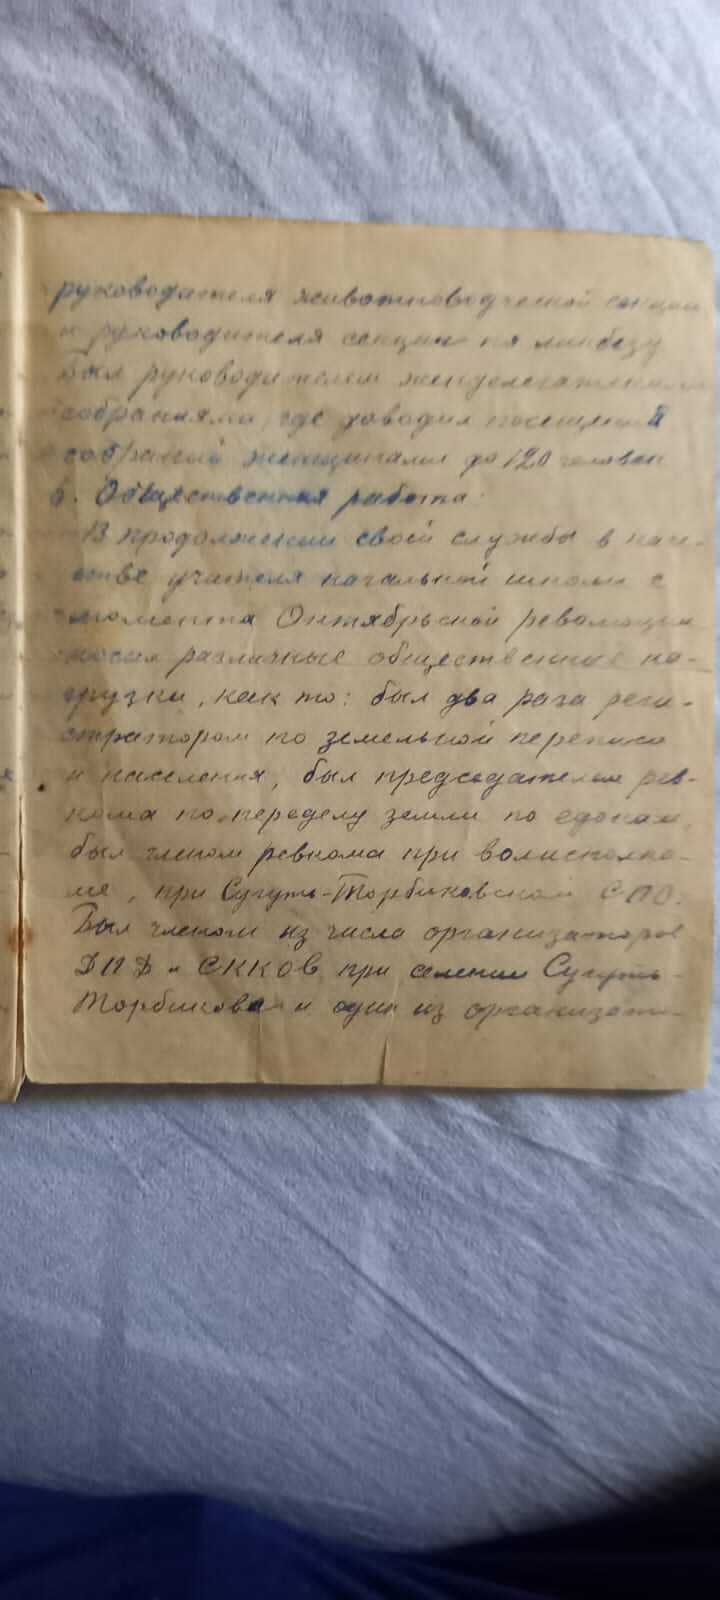 руководителя животноводческой секции
и руководителя секции по ликбезу
Был руководителем женделегатскими
собраниями, где доводил посещений
собраний женщинами до 120 человек
6. Общественная работа.
В продолжении своей службы в каче-
стве учителя начальной школы с
момента Октябрьской революции
носил различные общественные на-
грузки, как то: был два раза реги-
стратором по земельной переписи
и населения, был председателем рев-
кома по переделу земли по едокам,
был членом ревкома при волисполко-
ме, при Сугуть-Торбиковском СПО.
Был членом из числа организаторов
ДПД и СККОВ при селении Сугуть-
Торбиково и один из организато-